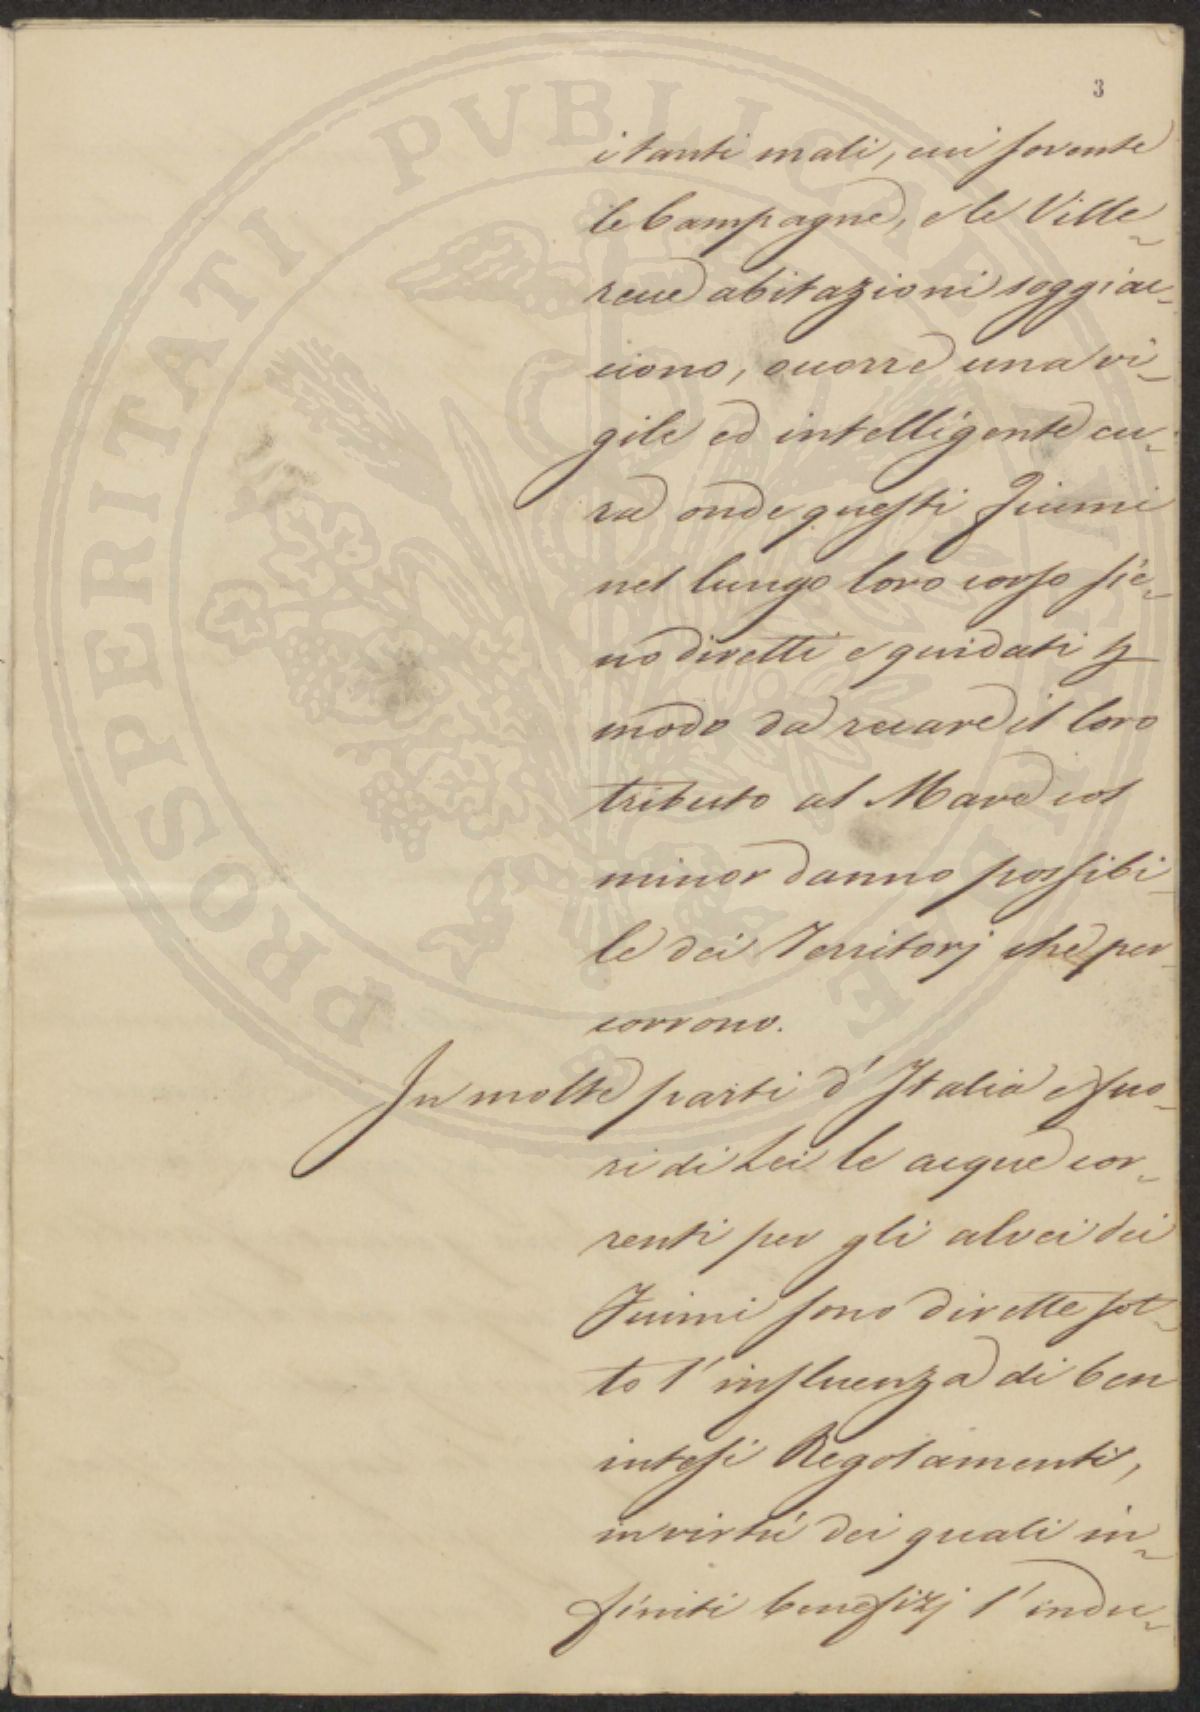 3
i tanti mali, cui sovente
le Campagne, e le Ville_
recce abitazioni soggiac_
ciono, occorre una vi_
gile ed intelligente cu_
ra onde questi Fiumi
nel lungo loro corso sie_
no diretti e guidati in
modo da recare il loro
tributo al Mare col
minor danno possibi_
le dei Territorj che per_
corrono.
In molte parti d'Italia e fuo_
ri di Lei le acque cor_
renti per gli alvei dei
Fiumi sono dirette sot_
to l'influenza di ben
intesi Regolamenti,
in virtù dei quali in_
finiti benefizj l'indu_
PROSPERITATI PVBLICAE AVGENDAE